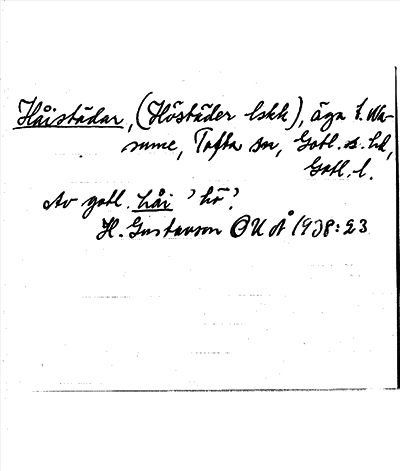 Håistädar, (Höstäder lskk), äga t. Na-
sume, Tofta sn, Gotl. s. hd,
Gotl. l.
Av gotl. håi 'hö'.
H. Gustavson OUÅ 1938:23